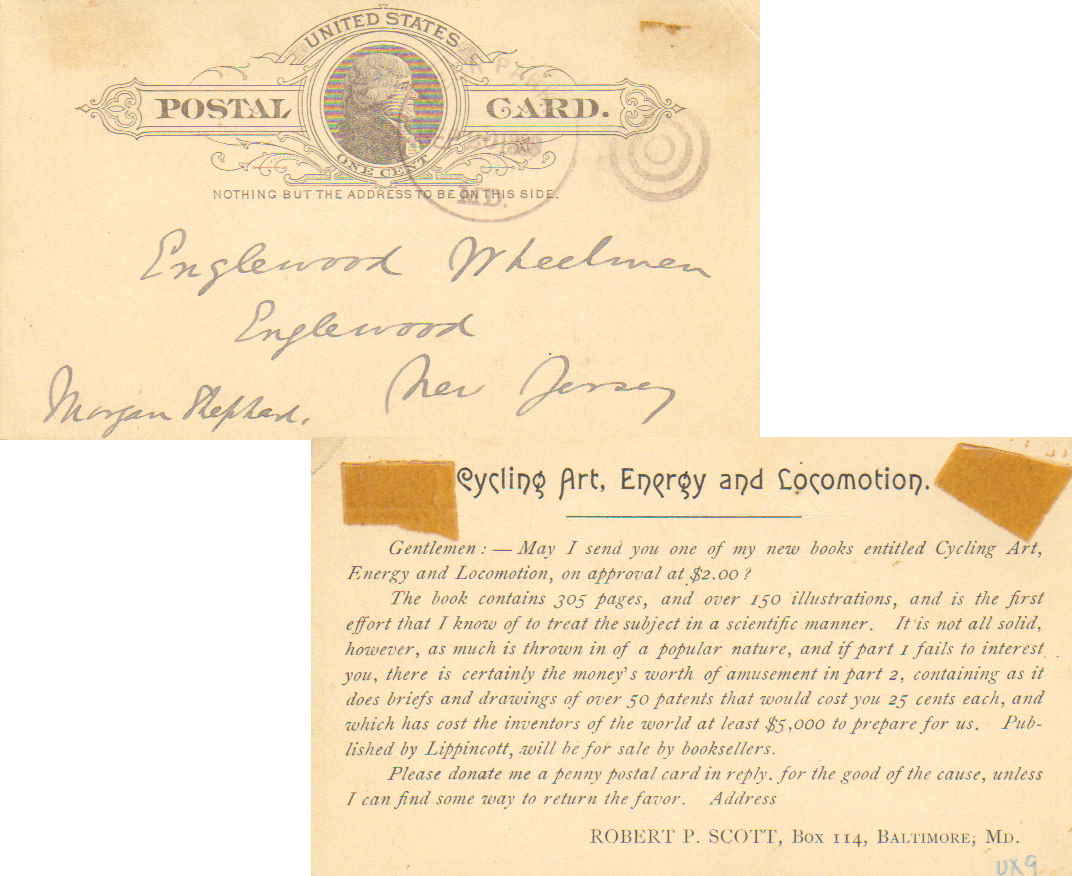 UNITED STATES
POSTAL CARD.
ONE CENT
NOTHING BUT THE ADDRESS TO BE ON THIS SIDE.
MD.
Englewood Wheelmen
Englewood
New Jersey
Morgan Shephard.
Cycling Art, Energy and Locomotion.
Gentlemen: — May I send you one of my new books entitled Cycling Art,
Energy and Locomotion, on approval at $2.00?
The book contains 305 pages, and over 150 illustrations, and is the first
effort that I know of to treat the subject in a scientific manner. It is not all solid,
however, as much is thrown in of a popular nature, and if part 1 fails to interest
you, there is certainly the money's worth of amusement in part 2, containing as it
does briefs and drawings of over 50 patents that would cost you 25 cents each, and
which has cost the inventors of the world at least $5,000 to prepare for us. Pub-
lished by Lippincott, will be for sale by booksellers.
Please donate me a penny postal card in reply. for the good of the cause, unless
I can find some way to return the favor. Address
ROBERT P. SCOTT, Box 114, Baltimore, Md.
UX9